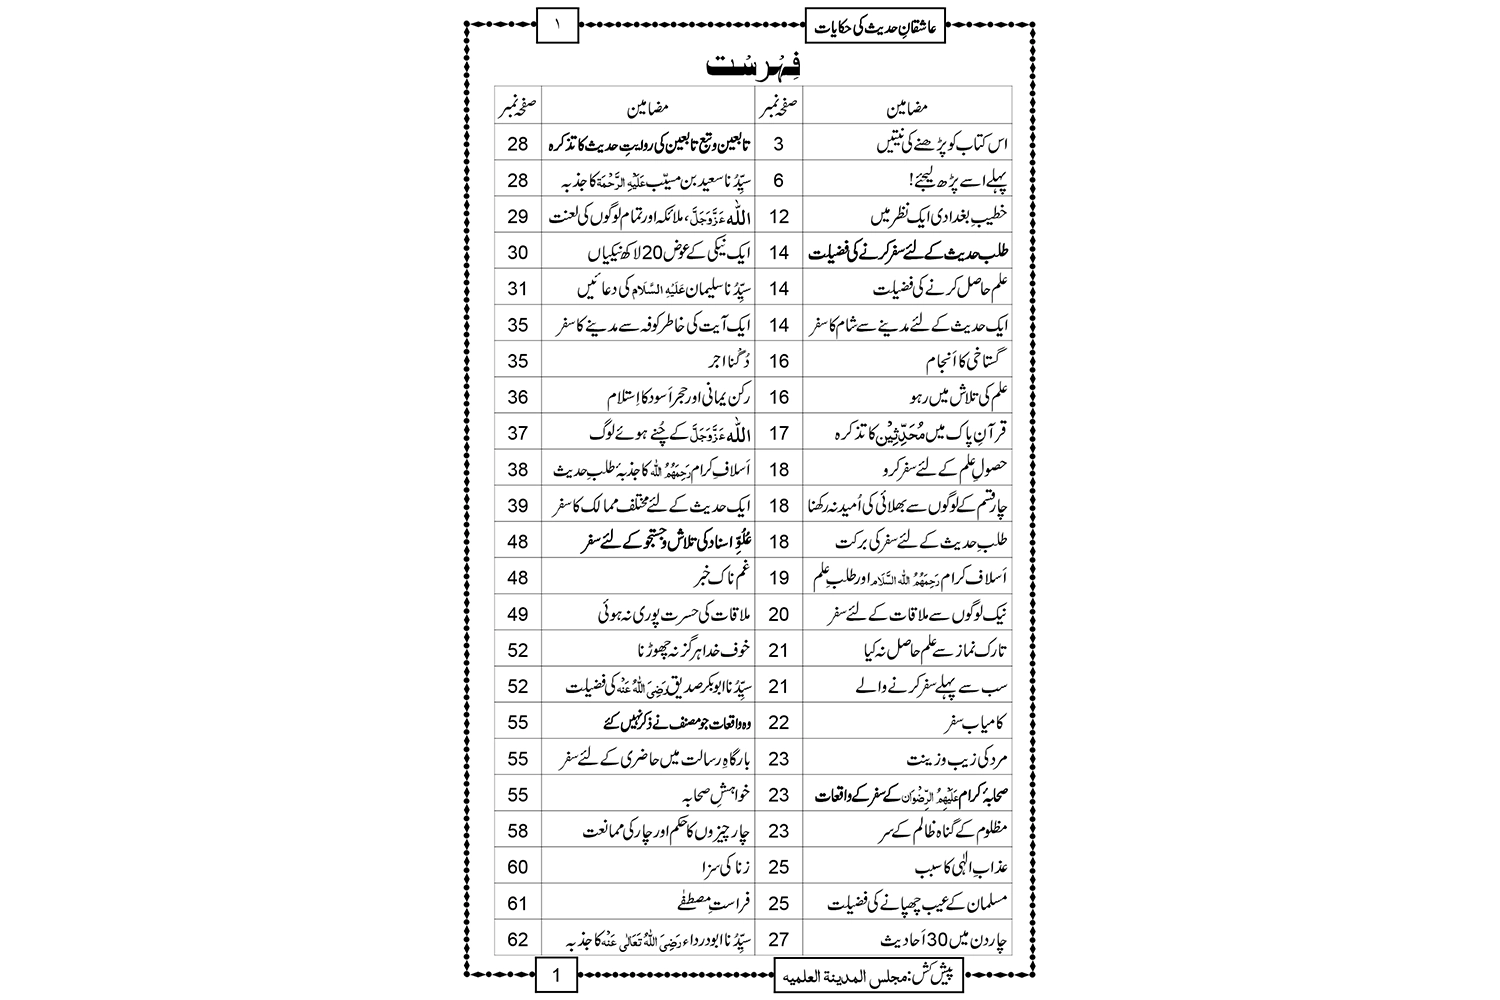 عاشقانِ حدیث کی حکایات ۱
فِہْرِسْت
مضامین صفحہ نمبر مضامین صفحہ نمبر
اس کتاب کو پڑھنے کی نیتیں 3 تابعین و تبع تابعین کی روایتِ حدیث کا تذکرہ 28
پہلے اسے پڑھ لیجئے! 6 سیِّدُنا سعید بن مسیّب عَلَیْہِ الرَّحْمَۃ کا جذبہ 28
خطیبِ بغدادی ایک نظر میں 12 اللّٰہ عَزَّوَجَلَّ، ملائکہ اور تمام لوگوں کی لعنت 29
طلب حدیث کے لئے سفر کرنے کی فضیلت 14 ایک نیکی کے عوض 20 لاکھ نیکیاں 30
علم حاصل کرنے کی فضیلت 14 سیِّدُنا سلیمان عَلَیْہِ السَّلَام کی دعائیں 31
ایک حدیث کے لئے مدینے سے شام کا سفر 14 ایک آیت کی خاطر کوفہ سے مدینے کا سفر 35
گستاخی کا اَنجام 16 دُگنا اجر 35
علم کی تلاش میں رہو 16 رکن یمانی اور حجر اَسود کا اِستلام 36
قرآنِ پاک میں مُحَدِّثِیْن کا تذکرہ 17 اللّٰہ عَزَّوَجَلَّ کے چُنے ہوئے لوگ 37
حصولِ علم کے لئے سفر کرو 18 اَسلافِ کرام رَحِمَھُمُ اللہ کا جذبۂ طلبِ حدیث 38
چار قسم کے لوگوں سے بھلائی کی اُمید نہ رکھنا 18 ایک حدیث کے لئے مختلف ممالک کا سفر 39
طلبِ حدیث کے لئے سفر کی برکت 18 عُلُوِّ اسناد کی تلاش و جستجو کے لئے سفر 48
اَسلاف کرام رَحِمَھُمُ اللہ السَّلَام اور طلبِ علم 19 غم ناک خبر 48
نیک لوگوں سے ملاقات کے لئے سفر 20 ملاقات کی حسرت پوری نہ ہوئی 49
تارک نماز سے علم حاصل نہ کیا 21 خوف خدا ہرگز نہ چھوڑنا 52
سب سے پہلے سفر کرنے والے 21 سیِّدُنا ابوبکر صدیق رَضِیَ اللہُ عَنْہ کی فضیلت 52
کامیاب سفر 22 وہ واقعات جو مصنف نے ذکر نہیں کئے 55
مرد کی زیب و زینت 23 بارگاہِ رسالت میں حاضری کے لئے سفر 55
صحابۂ کرام عَلَیْہِمُ الرِّضْوَان کے سفر کے واقعات 23 خواہشِ صحابہ 55
مظلوم کے گناہ ظالم کے سر 23 چار چیزوں کا حکم اور چار کی ممانعت 58
عذابِ الٰہی کا سبب 25 زنا کی سزا 60
مسلمان کے عیب چھپانے کی فضیلت 25 فراستِ مصطفٰے 61
چار دن میں 30 اَحادیث 27 سیِّدُنا ابودرداء رَضِیَ اللہُ تَعَالٰی عَنْہ کا جذبہ 62
پیش کش: مجلس المدینۃ العلمیہ 1